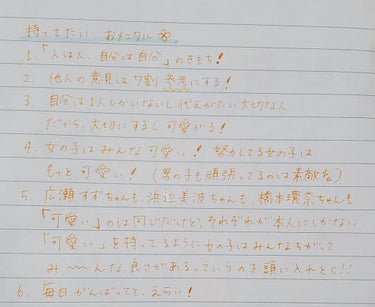 持ってたい おメンタル
1. 「人は人、自分は自分」のきもち!
2. 他人の意見は7割参考にする!
3. 自分は1人しかいないし、代えがたい大切な人
だから、大切にするし、可愛がる!
4. 女の子はみんな可愛い! 努力してる女の子は
もっと可愛い! (男の子も頑張ってるのは素敵な)
5. 広瀬すずちゃんも、浜辺美波ちゃんも、橋本環奈ちゃんも
「可愛い」のは同じだけど、それぞれが本人にしかない
「可愛い」を持ってるように女の子はみんなちがって
み〜〜んな良さがあるっていうのを頭に入れとく!!
6. 毎日がんばってて、えらい!